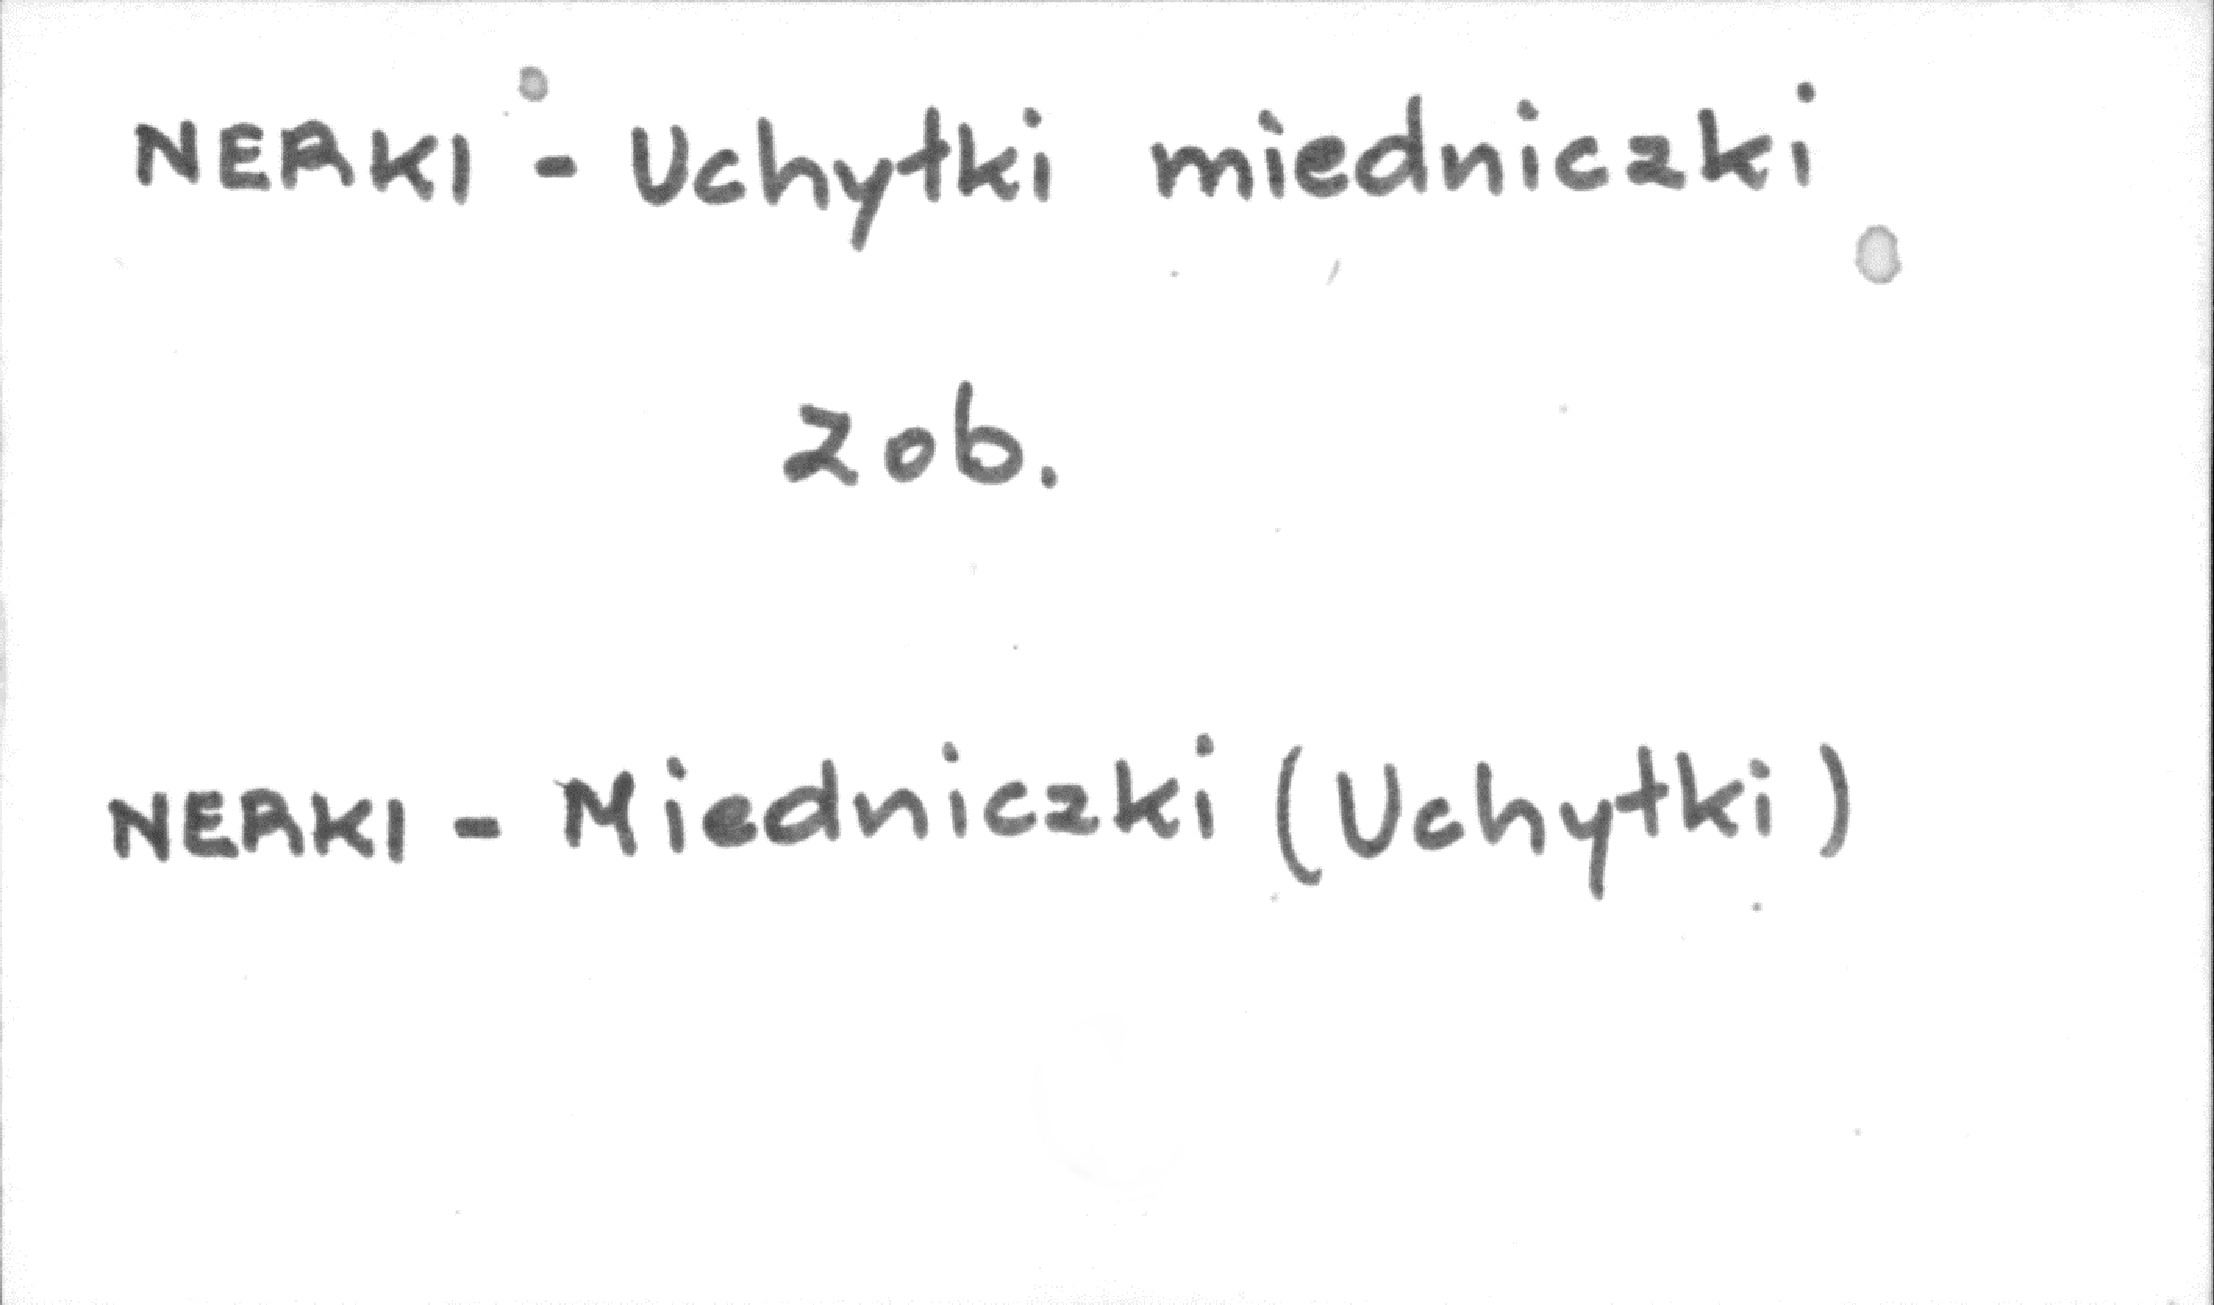 NERKI - Uchyłki miedniczki
zob.
NERKI - Miedniczki (Uchyłki)